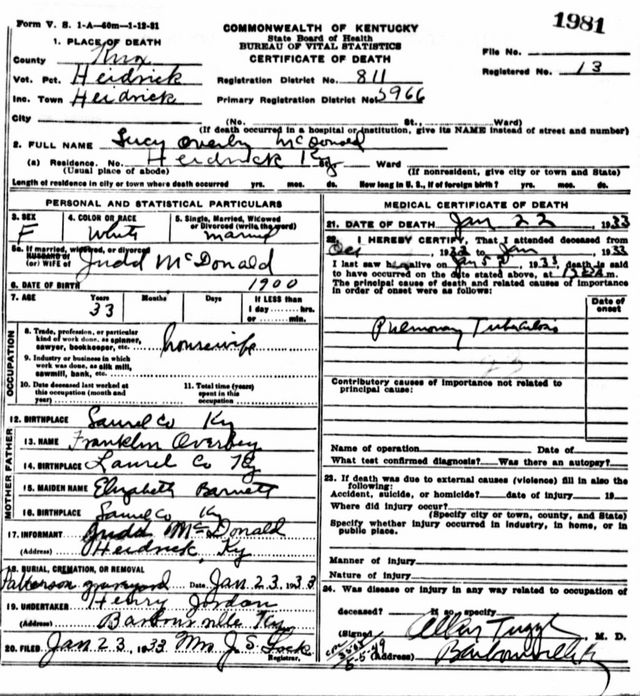 Form V. S. 1-A—60m—1-12-31
1981
COMMONWEALTH OF KENTUCKY
State Board of Health
BUREAU OF VITAL STATISTICS
CERTIFICATE OF DEATH
1. PLACE OF DEATH
County Knox
File No.
Vot. Pct. Heidrick
Registration District No. 811
Registered No. 13
Inc. Town Heidrick
Primary Registration District No. 5966
City (No. St., Ward)
(If death occurred in a hospital or institution, give its NAME instead of street and number)
2. FULL NAME Lucy Overby McDonald
(a) Residence. No. Heidrick Ky Ward
(Usual place of abode) (If nonresident, give city or town and State)
Length of residence in city or town where death occurred yrs. mos. ds. How long in U. S., if of foreign birth? yrs. mos. ds.
PERSONAL AND STATISTICAL PARTICULARS
3. SEX
F
4. COLOR OR RACE
White
5. Single, Married, Widowed
or Divorced (write the word)
married
5a. If married, widowed, or divorced
HUSBAND of
(or) WIFE of Judd McDonald
6. DATE OF BIRTH 1900
7. AGE Years Months Days If LESS than
33 1 day hrs.
or min.
OCCUPATION
8. Trade, profession, or particular
kind of work done, as spinner,
sawyer, bookkeeper, etc. housewife
9. Industry or business in which
work was done, as silk mill,
sawmill, bank, etc.
10. Date deceased last worked at
this occupation (month and
year)
11. Total time (years)
spent in this
occupation
12. BIRTHPLACE Laurel Co Ky
FATHER
13. NAME Franklin Overbey
14. BIRTHPLACE Laurel Co Ky
MOTHER
15. MAIDEN NAME Elizabeth Barnett
16. BIRTHPLACE Laurel Co Ky
17. INFORMANT Judd McDonald
(Address) Heidrick, Ky
18. BURIAL, CREMATION, OR REMOVAL
Patterson graveyard Date Jan 23 1933
19. UNDERTAKER Henry Jordan
(Address) Barbourville Ky
20. FILED Jan 23, 1933 Mrs J. S. Lock
Registrar.
MEDICAL CERTIFICATE OF DEATH
21. DATE OF DEATH Jan 22, 1933
22. I HEREBY CERTIFY, That I attended deceased from
Dec 1932 to Jan, 1933
I last saw h alive on Jan 1933, death is said
to have occurred on the date stated above, at m.
The principal cause of death and related causes of importance
in order of onset were as follows:
Date of
onset
Pulmonary Tuberculosis
Contributory causes of importance not related to
principal cause:
Name of operation Date of
What test confirmed diagnosis? Was there an autopsy?
23. If death was due to external causes (violence) fill in also the
following:
Accident, suicide, or homicide? date of injury 19
Where did injury occur?
(Specify city or town, county, and State)
Specify whether injury occurred in industry, in home, or in
public place.
Manner of injury
Nature of injury
24. Was disease or injury in any way related to occupation of
deceased? If so specify
(Signed) Allen Tuggle M. D.
(Address) Barbourville Ky